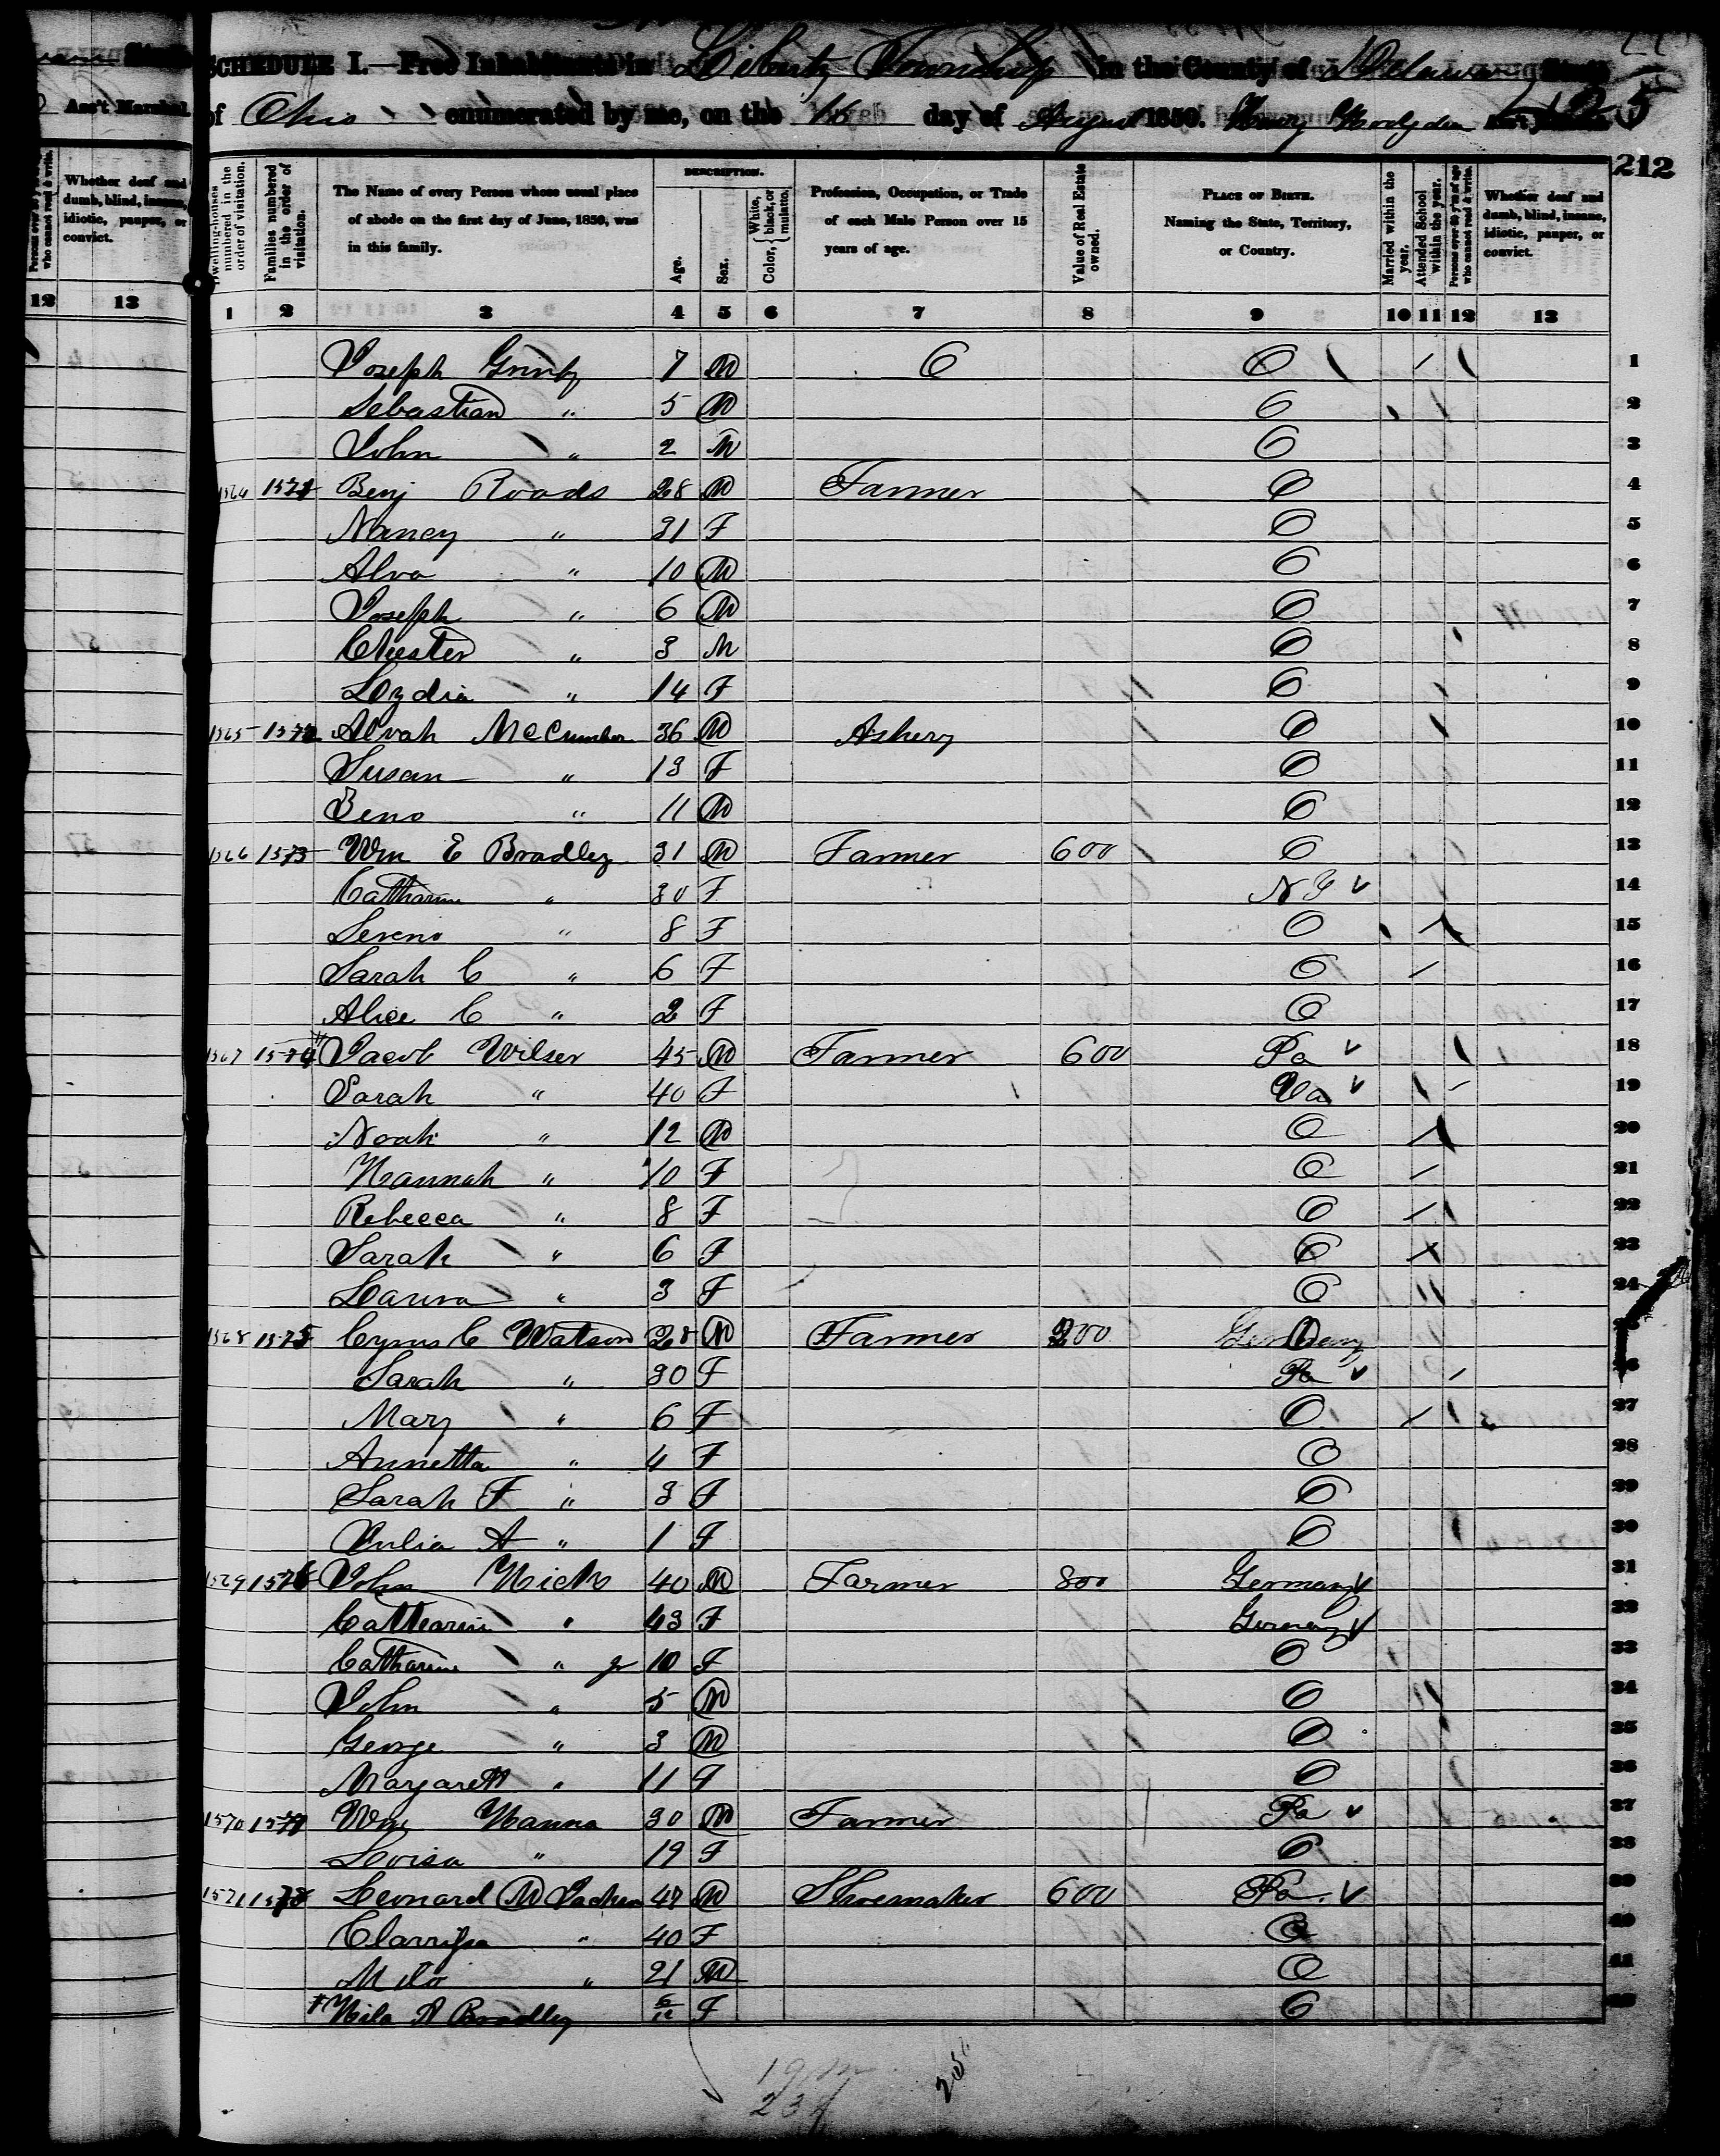 SCHEDULE I.—Free Inhabitants in Liberty Township in the County of Delaware State
of Ohio enumerated by me, on the 16 day of August 1850. Henry Hodgden Ass't Marshal.
Ass't Marshal.
212
Dwelling-houses numbered in the order of visitation.
Families numbered in the order of visitation.
The Name of every Person whose usual place of abode on the first day of June, 1850, was in this family.
DESCRIPTION.
Age.
Sex.
Color, { White, black, or mulatto.
Profession, Occupation, or Trade of each Male Person over 15 years of age.
Value of Real Estate owned.
PLACE OF BIRTH. Naming the State, Territory, or Country.
Married within the year.
Attended School within the year.
Persons over 20 y'rs of age who cannot read & write.
Whether deaf and dumb, blind, insane, idiotic, pauper, or convict.
12 13
1 2 3 4 5 6 7 8 9 10 11 12 13
Joseph 7 M O O / 1
Sebastian " 5 M O 2
John " 2 M O 3
1564 1571 Benj Roads 28 M Farmer O 4
Nancy " 31 F O 5
Alva " 10 M O 6
Joseph " 6 M O 7
Chester " 3 M O 8
Lydia " 14 F O 9
1565 1572 Alvah McCumber 36 M Ashery O 10
Susan " 13 F O 11
Zeno " 11 M O 12
1566 1573 Wm E Bradley 31 M Farmer 600 O 13
Catharine " 30 F N Y 14
Sereno " 8 F O / 15
Sarah C " 6 F O / 16
Alice C " 2 F O 17
1567 1574 Jacob Wilser 45 M Farmer 600 Pa 18
Sarah " 40 F Va / 19
Noah " 12 M O / 20
Hannah " 10 F O / 21
Rebecca " 8 F O / 22
Sarah " 6 F O / 23
" 3 F O 24
1568 1575 Cyrus C Watson 28 M Farmer 200 O
Sarah " 30 F Pa / 26
Mary " 6 F O / 27
Annetta " 4 F O 28
Sarah F " 3 F O 29
Julia A " 1 F O 30
1569 1576 John Hick 40 M Farmer 800 Germany 31
Catharine " 43 F Germany 32
Catharine " Jr 10 F O 33
John " 5 M O 34
George " 3 M O 35
Margarett " 11 F O 36
1570 1577 Wm Hanna 30 M Farmer Pa 37
Loisa " 19 F O 38
1571 1578 Leonard M 47 M Shoemaker 600 Pa 39
Clarrissa " 40 F O 40
Milo " 21 M O 41
Bradley F O 42
19 m
23 f